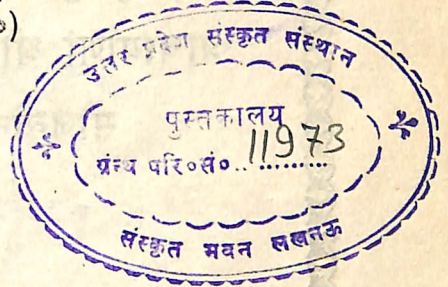 उत्तर प्रदेश संस्कृत संस्थान
पुस्तकालय
ग्रन्थ परि०सं०..11973
संस्कृत भवन लखनऊ